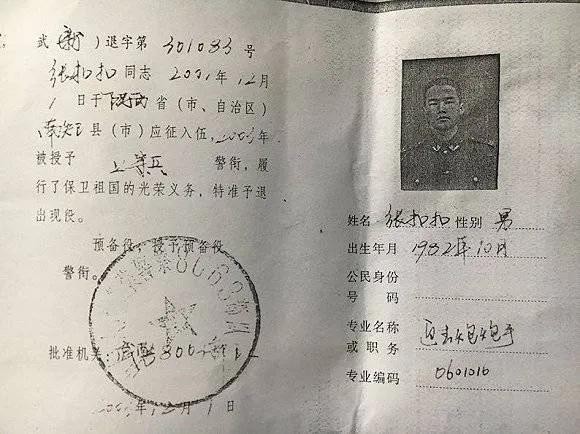 武(新)退字第 301083 号
张扣扣 同志 2001年12月
1日于陕西省(市、自治区)
南郑县(市)应征入伍,2003年
被授予 上等兵 警衔,履
行了保卫祖国的光荣义务,特准予退
出现役。
预备役,授予预备役
警衔。
批准机关:
年12月1日
姓名 张扣扣 性别 男
出生年月 1982年10月
公民身份
号 码
专业名称 迫击炮炮手
或职务
专业编码 0601010